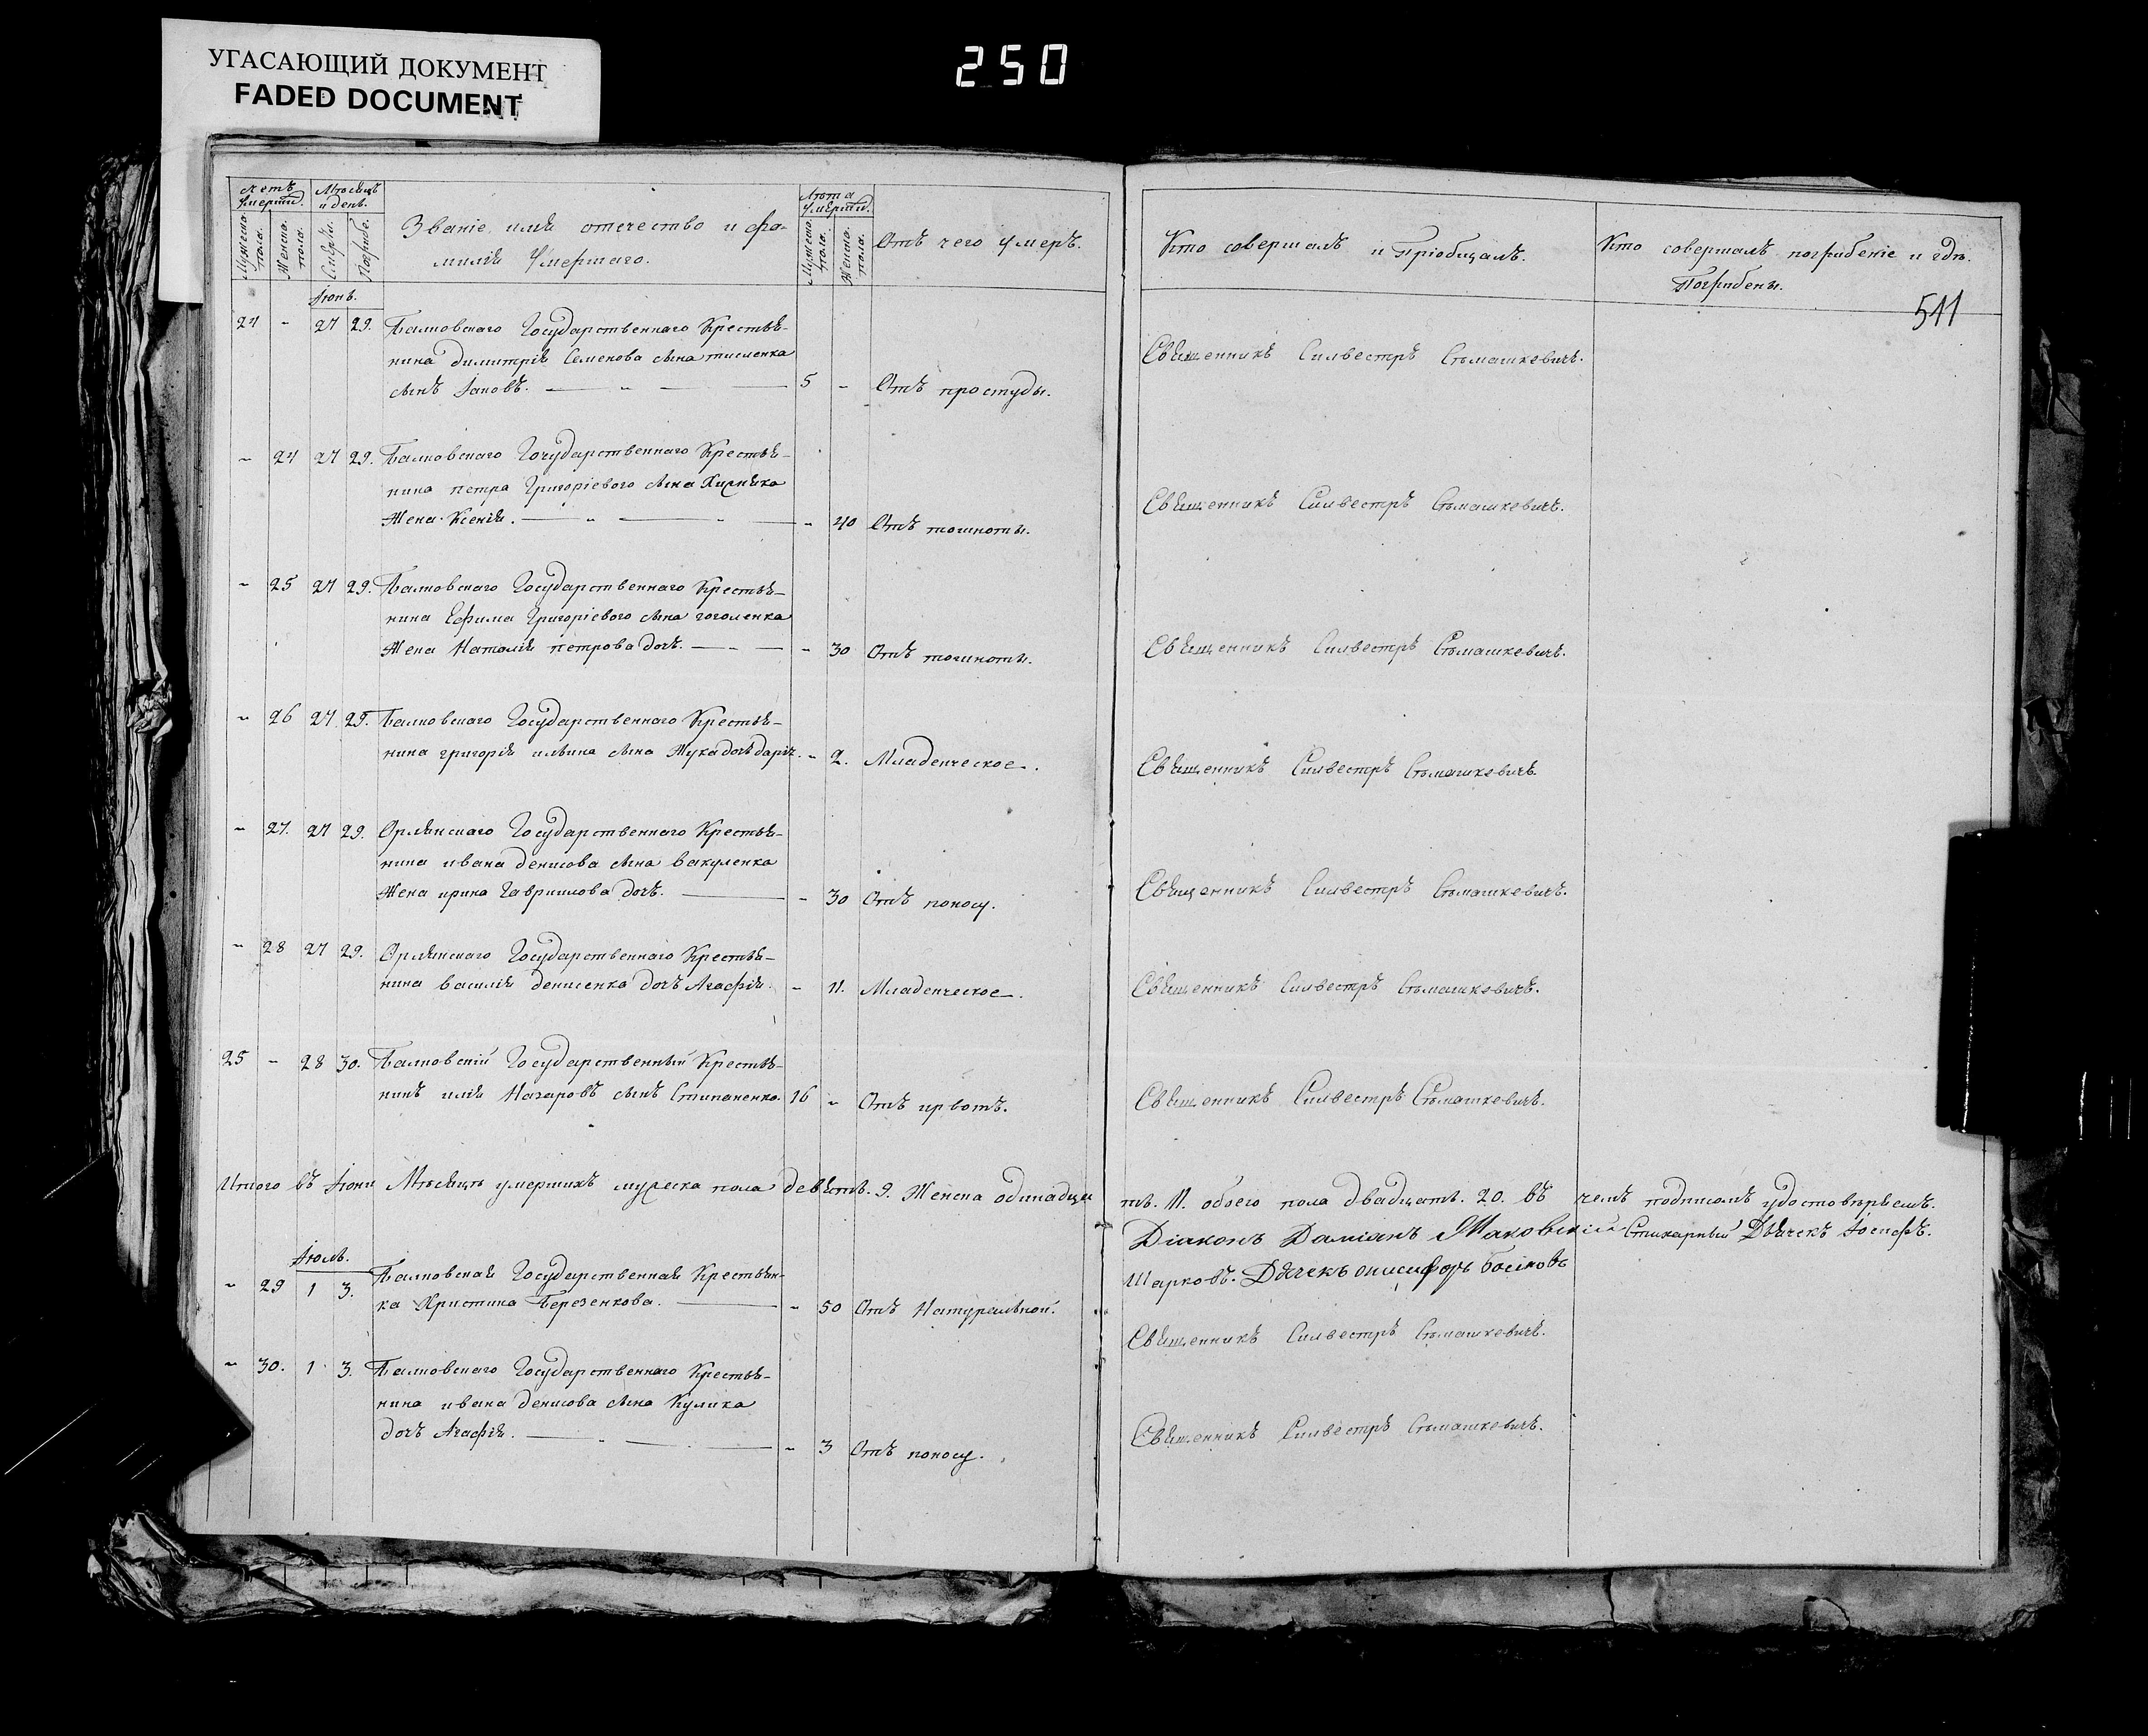 УГАСАЮЩИЙ ДОКУМЕНТ
FADED DOCUMENT
250
Счетъ умерши.
Мѣсяцъ и день.
Званіе имя отечество и фа-
миліи Умершаго.
Лѣта Умерши.
Отъ чего умеръ.
Мужеска пола.
Женска пола.
Смерти.
Погребе.
Мужеска пола.
Женска пола.
Кто совершалъ и Пріобщалъ.
Кто совершалъ погребеніе и гдѣ
Погребены.
511
Іюнь.
24 - 27 29. Балковскаго Государственнаго Крестья-
нина димитрія Семенова сына
сынъ Іаковъ. 5 - Отъ простуды.
Священникъ Силвестръ Стомашкевичъ.
- 24 27 29. Балковскаго Государственнаго Крестья-
нина петра Григоріевого сына
Жена Ксенія. - 40 Отъ тошноты.
Священникъ Силвестръ Стомашкевичъ.
- 25 27 29. Балковскаго Государственнаго Крестья-
нина Ефима Григоріевого сына гоголенка
Жена Наталія петрова дочъ. - 30 Отъ тошноты.
Священникъ Силвестръ Стомашкевичъ.
- 26 27 29. Балковскаго Государственнаго Крестья-
нина григорія ильина сына Жука дочъ дарія. - 2. Младенческое.
Священникъ Силвестръ Стомашкевичъ.
- 27. 27 29. Орлянскаго Государственнаго Крестья-
нина ивана денисова сына вакуленка
Жена ирина Гавриилова дочъ. - 30 Отъ поносу.
Священникъ Силвестръ Стомашкевичъ.
- 28 27 29. Орлянскаго Государственнаго Крестья-
нина василія денисенка дочъ Агафія. - 11. Младенческое.
Священникъ Силвестръ Стомашкевичъ.
25 - 28 30. Балковскій Государственный Крестья-
нинъ илія Назаровъ сынъ Стипаненко. 16 - Отъ
Священникъ Силвестръ Стомашкевичъ.
Итого въ Іюни Мѣсяцѣ умершихъ мужеска пола девять. 9. Женска одинадца
ть. 11. обоего пола двадцать. 20. въ чемъ подписомъ удостовѣряемъ.
Діаконъ Даміанъ Маковскій Стихарный Дьячекъ Іосифъ
Шарковъ. Дячекъ онисифоръ
Іюль.
- 29 1 3. Балковская Государственная Крестьян-
ка Христина Березенкова. - 50 Отъ Натуральной.
Священникъ Силвестръ Стомашкевичъ.
- 30. 1 3. Балковскаго Государственнаго Крестья-
нина ивана денисова сына Кулика
дочъ Агафія. - 3 Отъ поносу.
Священникъ Силвестръ Стомашкевичъ.